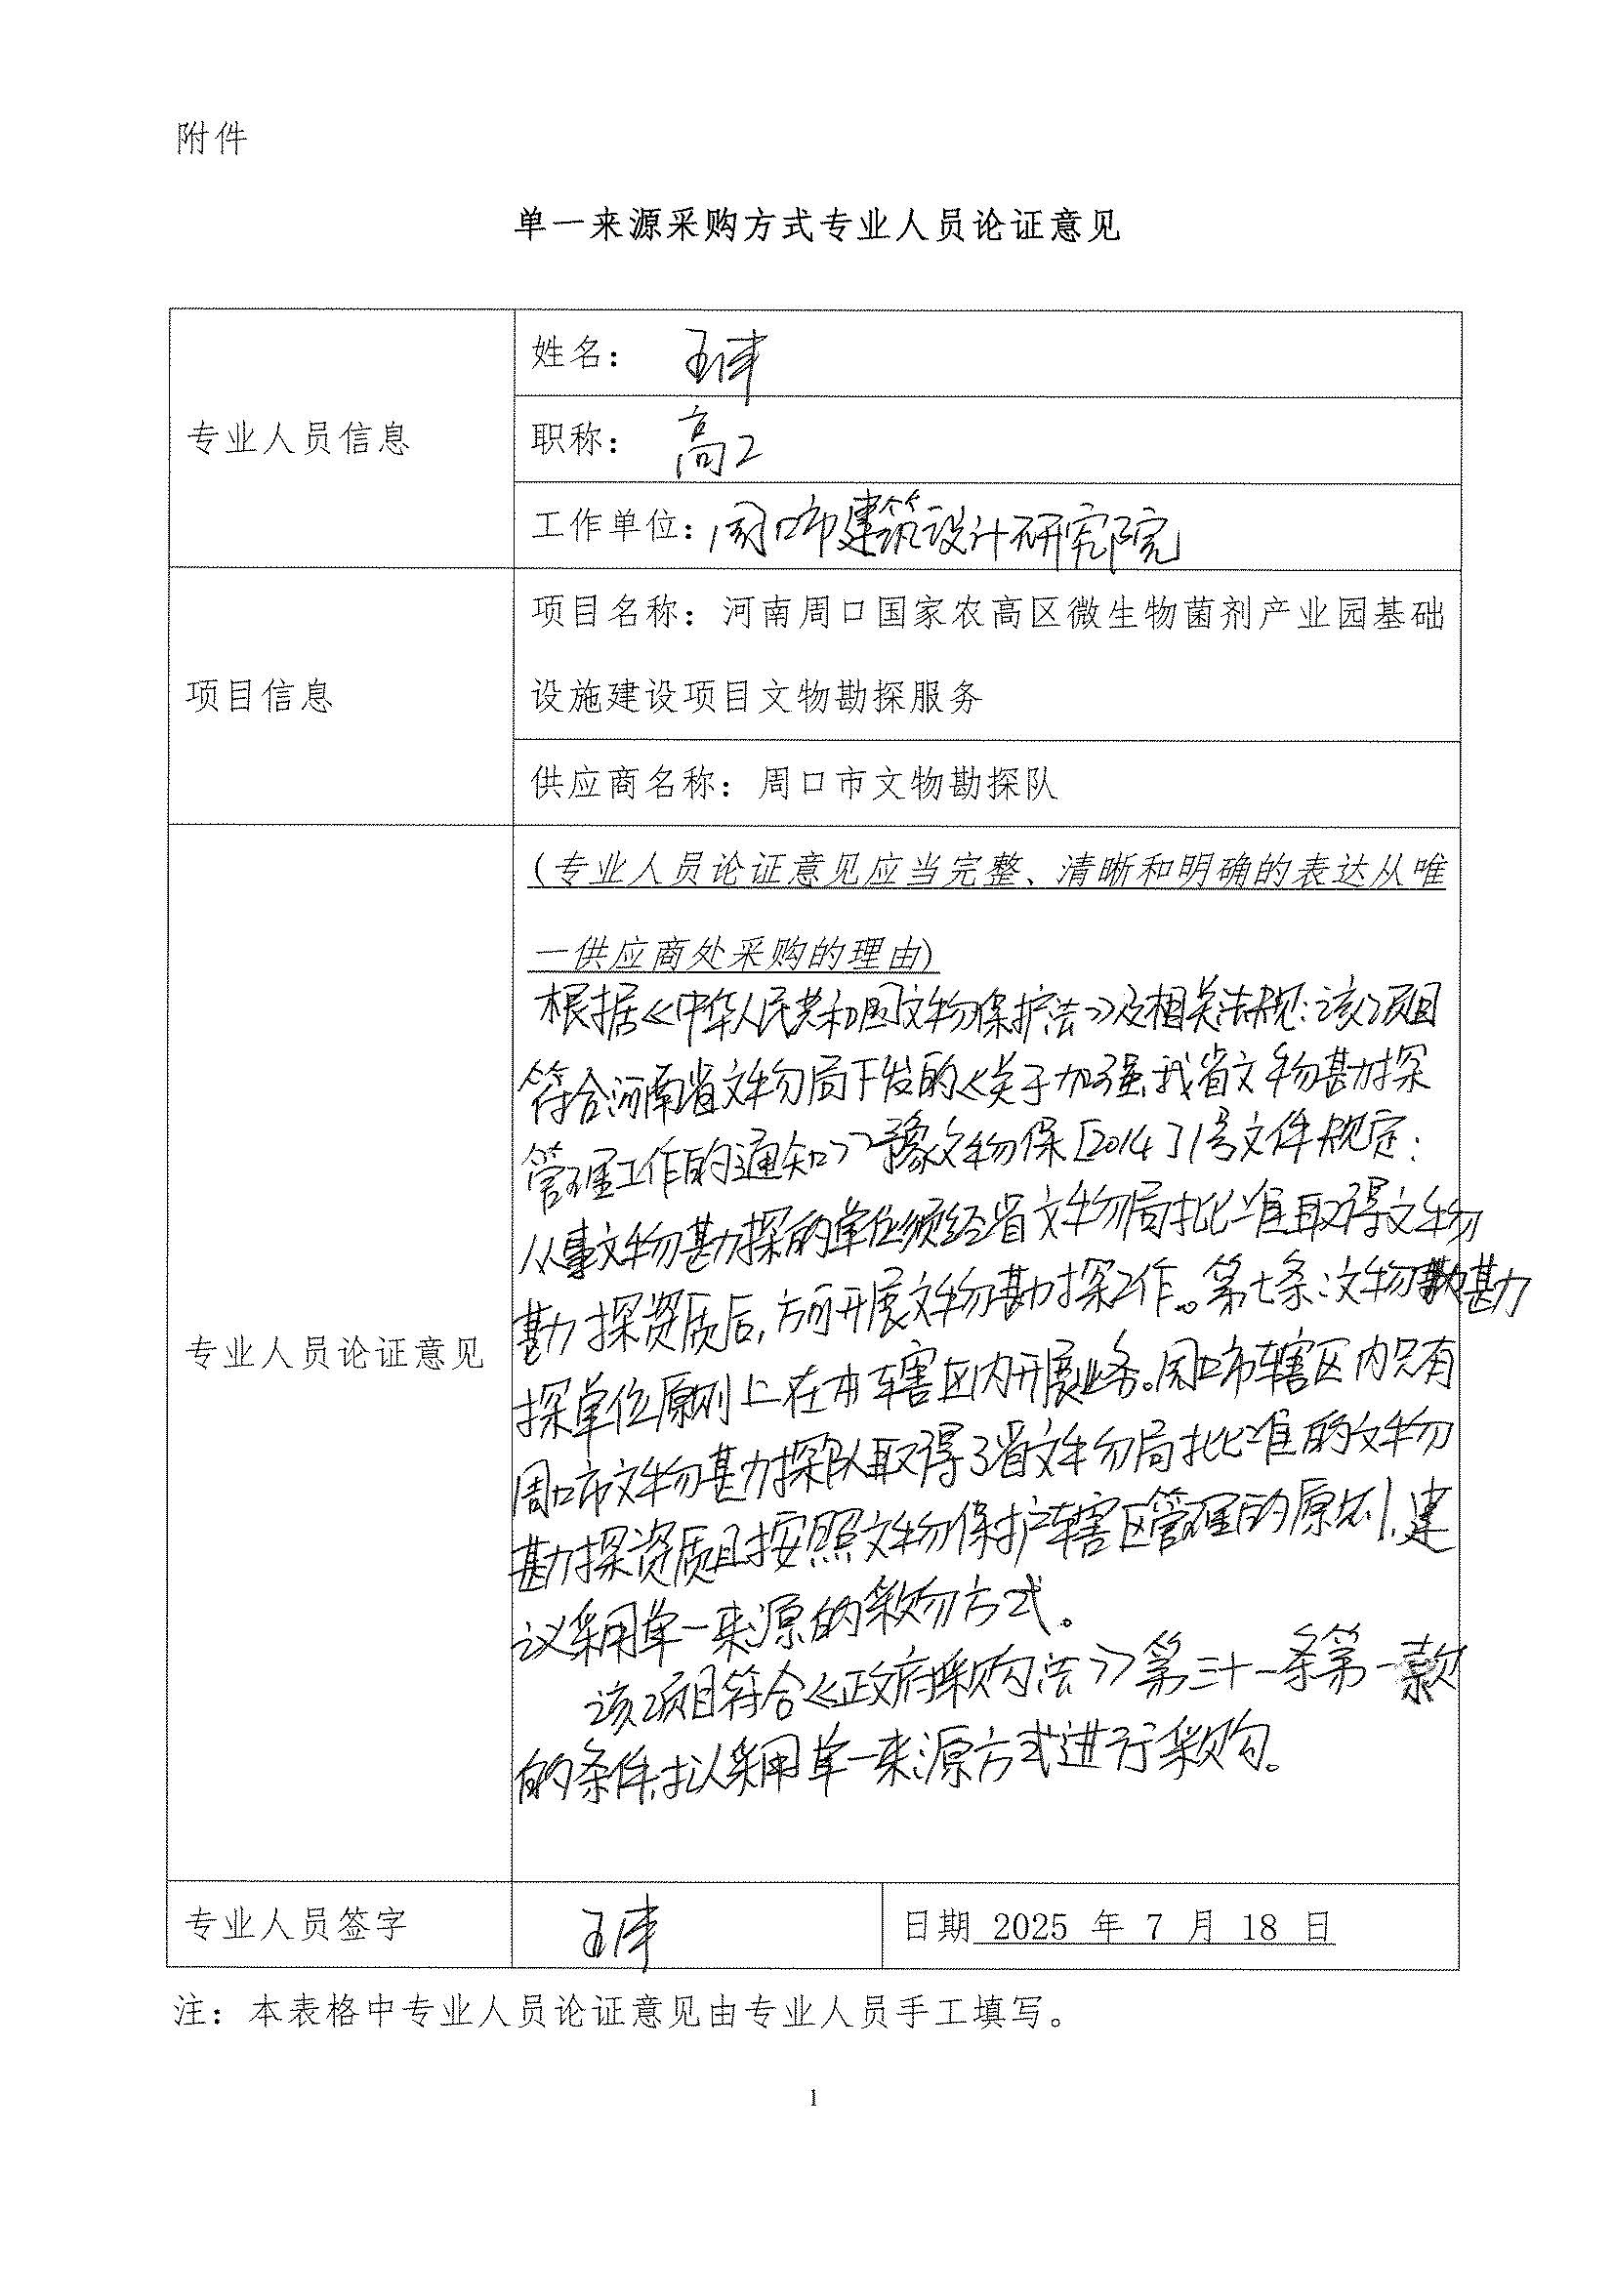 附件
单一来源采购方式专业人员论证意见
专业人员信息
姓名：王伟
职称：高工
工作单位：周口市建筑设计研究院
项目信息
项目名称：河南周口国家农高区微生物菌剂产业园基础
设施建设项目文物勘探服务
供应商名称：周口市文物勘探队
专业人员论证意见
(专业人员论证意见应当完整、清晰和明确的表达从唯
一供应商处采购的理由)
根据《中华人民共和国文物保护法》及相关法规：该项目
符合河南省文物局下发的《关于加强我省文物勘探
管理工作的通知》豫文物保[2014]1号文件规定：
从事文物勘探的单位须经省文物局批准取得文物
勘探资质后，方可开展文物勘探工作。第七条：文物勘
探单位原则上在本辖区内开展业务。周口市辖区内只有
周口市文物勘探队取得了省文物局批准的文物
勘探资质且按照文物保护辖区管理的原则，建
议采用单一来源的采购方式。
该项目符合《政府采购法》第三十一条第一款
的条件，拟采用单一来源方式进行采购。
专业人员签字
王伟
日期 2025 年 7 月 18 日
注：本表格中专业人员论证意见由专业人员手工填写。
1